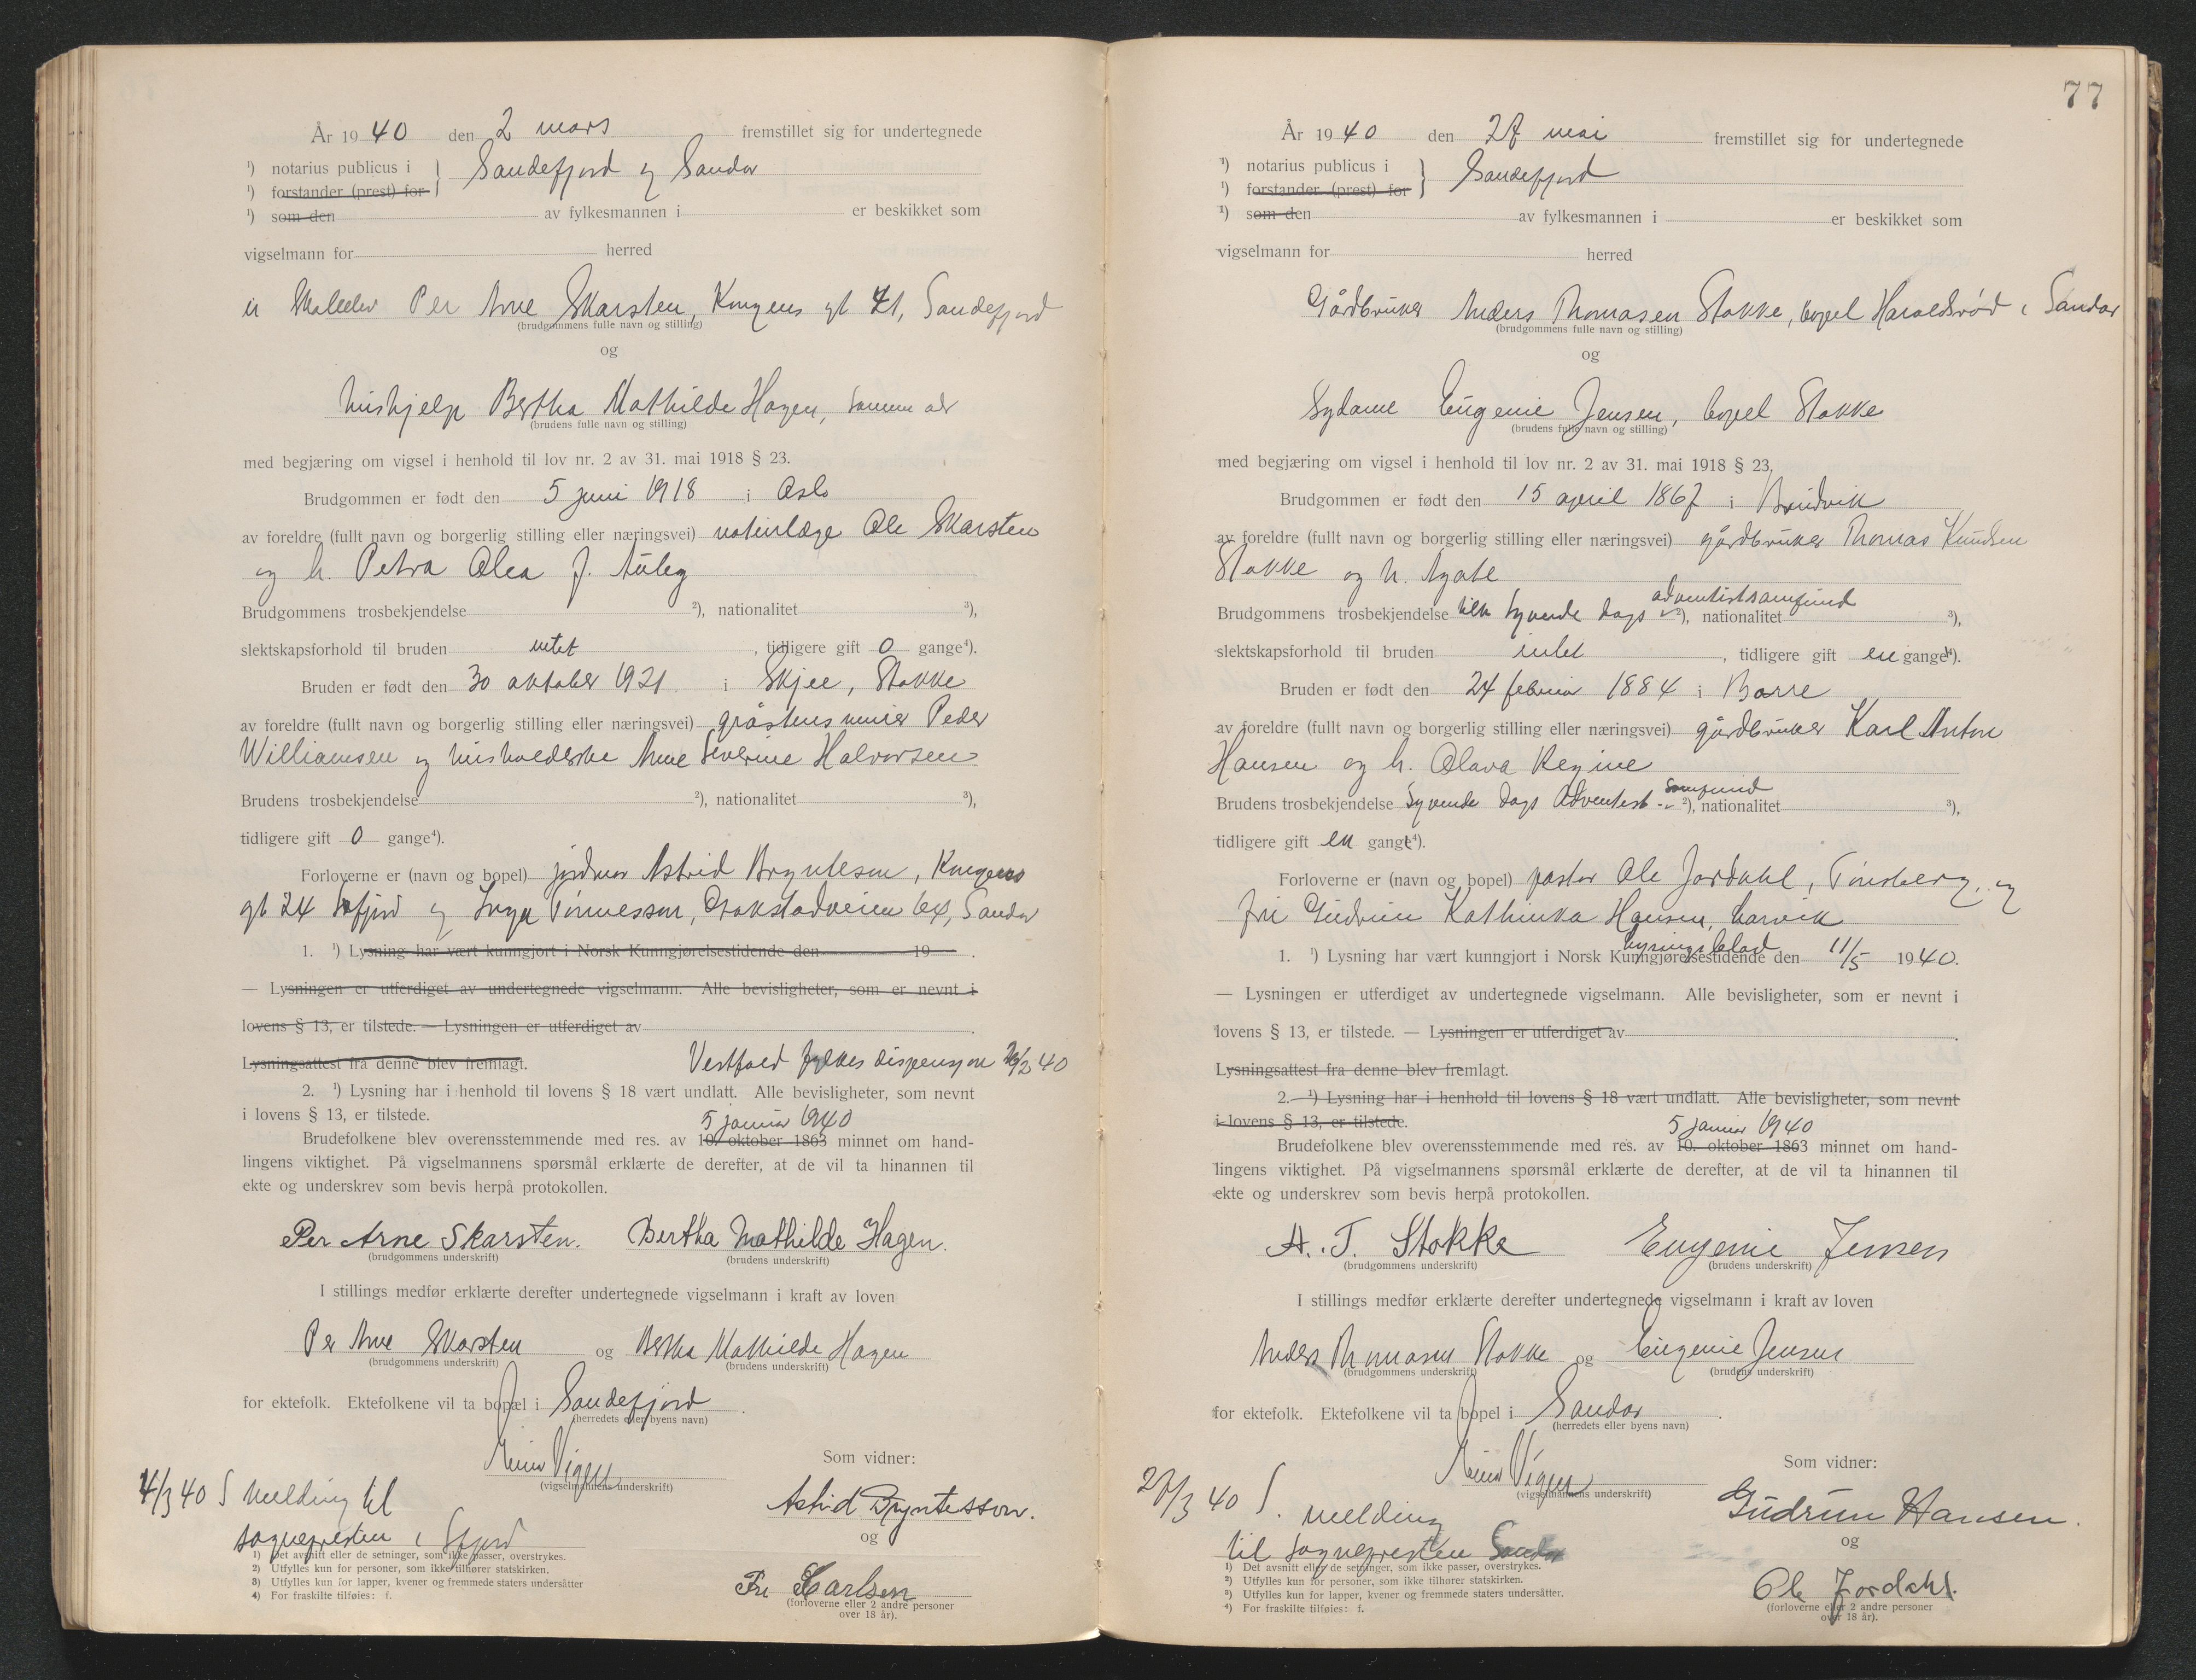 År 1940 den 2 mars fremstillet sig for undertegnede
¹) notarius publicus i } Sandefjord og Sandar
¹) forstander (prest) for
¹) som den av fylkesmannen i er beskikket som
vigselmann for herred
Per Arne Skarsten, Kongens gt 41, Sandefjord
(brudgommens fulle navn og stilling)
og
hushjelp Bertha Mathilde Hagen, samme adr
(brudens fulle navn og stilling)
med begjæring om vigsel i henhold til lov nr. 2 av 31. mai 1918 § 23.
Brudgommen er født den 5 juni 1918 i Oslo
av foreldre (fullt navn og borgerlig stilling eller næringsvei) naturlæge Ole Skarsten
og h. Petra Olea f. Auleg
Brudgommens trosbekjendelse ²), nationalitet ³),
slektskapsforhold til bruden intet, tidligere gift 0 gange⁴).
Bruden er født den 30 oktober 1921 i Skjee, Stokke
av foreldre (fullt navn og borgerlig stilling eller næringsvei) gråstensmurer Peder
Williamsen og husholderske Anne Severine Halvorsen
Brudens trosbekjendelse ²), nationalitet ³),
tidligere gift 0 gange⁴).
Forloverne er (navn og bopel) jordmor Astrid Bryntesson, Kongens
gt 24 Sfjord og Inga Tønnessen, Gokstadveien 64, Sandar
1. ¹) Lysning har vært kunngjort i Norsk Kunngjørelsestidende den 19 .
— Lysningen er utferdiget av undertegnede vigselmann. Alle bevisligheter, som er nevnt i
lovens § 13, er tilstede. — Lysningen er utferdiget av .
Lysningsattest fra denne blev fremlagt. Vestfold fylkes dispensasjon 26/2 40
2. ¹) Lysning har i henhold til lovens § 18 vært undlatt. Alle bevisligheter, som nevnt
i lovens § 13, er tilstede. 5 januar 1940
Brudefolkene blev overensstemmende med res. av 10. oktober 1863 minnet om hand-
lingens viktighet. På vigselmannens spørsmål erklærte de derefter, at de vil ta hinannen til
ekte og underskrev som bevis herpå protokollen.
Per Arne Skarsten. Bertha Mathilde Hagen.
(brudgommens underskrift) (brudens underskrift)
I stillings medfør erklærte derefter undertegnede vigselmann i kraft av loven
Per Arne Skarsten og Bertha Mathilde Hagen
(brudgommens underskrift) (brudens underskrift)
for ektefolk. Ektefolkene vil ta bopæl i Sandefjord .
(herredets eller byens navn)
Einar Vigen
(vigselmannens underskrift)
Som vidner:
4/3 40 S Melding til
sognepresten i Sfjord
Astrid Bryntesson.
og
Fru Karlsen
(forloverne eller 2 andre personer
over 18 år).
1) Det avsnitt eller de setninger, som ikke passer, overstrykes.
2) Utfylles kun for personer, som ikke tilhører statskirken.
3) Utfylles kun for lapper, kvener og fremmede staters undersåtter
4) For fraskilte tilføies: f.
77
År 1940 den 28 mai fremstillet sig for undertegnede
¹) notarius publicus i } Sandefjord
¹) forstander (prest) for
¹) som den av fylkesmannen i er beskikket som
vigselmann for herred
Gårdbruker Anders Thomasen Stokke, bopel Haraldsrød i Sandar
(brudgommens fulle navn og stilling)
og
Sydame Eugenie Jensen, bopel Stokke
(brudens fulle navn og stilling)
med begjæring om vigsel i henhold til lov nr. 2 av 31. mai 1918 § 23.
Brudgommen er født den 15 april 1867 i Bruvik
av foreldre (fullt navn og borgerlig stilling eller næringsvei) gårdbruker Thomas Knudsen
Stokke og h. Agate
adventistsamfund
Brudgommens trosbekjendelse tilh Syvende dags ²), nationalitet ³),
slektskapsforhold til bruden intet, tidligere gift en gange⁴).
Bruden er født den 24 februar 1884 i Borre
av foreldre (fullt navn og borgerlig stilling eller næringsvei) gårdbruker Karl Anton
Hansen og h. Olava Regine
samfund
Brudens trosbekjendelse Syvende dags Adventist - ²), nationalitet ³),
tidligere gift en gange⁴).
Forloverne er (navn og bopel) pastor Ole Jordahl, Tønsberg, og
fru Gudrun Kathinka Hansen, Larvik
lysingsblad
1. ¹) Lysning har vært kunngjort i Norsk Kunngjørelsestidende den 11/5 1940.
— Lysningen er utferdiget av undertegnede vigselmann. Alle bevisligheter, som er nevnt i
lovens § 13, er tilstede. — Lysningen er utferdiget av .
Lysningsattest fra denne blev fremlagt.
2. ¹) Lysning har i henhold til lovens § 18 vært undlatt. Alle bevisligheter, som nevnt
i lovens § 13, er tilstede. 5 januar 1940
Brudefolkene blev overensstemmende med res. av 10. oktober 1863 minnet om hand-
lingens viktighet. På vigselmannens spørsmål erklærte de derefter, at de vil ta hinannen til
ekte og underskrev som bevis herpå protokollen.
A. T. Stokke Eugenie Jensen
(brudgommens underskrift) (brudens underskrift)
I stillings medfør erklærte derefter undertegnede vigselmann i kraft av loven
Anders Thomasen Stokke og Eugenie Jensen
(brudgommens underskrift) (brudens underskrift)
for ektefolk. Ektefolkene vil ta bopel i Sandar .
(herredets eller byens navn)
Einar Vigen
(vigselmannens underskrift)
Som vidner:
40 S. melding
til sognepresten Sandar
Gudrun Hansen.
og
Ole Jordahl.
(forloverne eller 2 andre personer
over 18 år).
1) Det avsnitt eller de setninger, som ikke passer, overstrykes.
2) Utfylles kun for personer, som ikke tilhører statskirken.
3) Utfylles kun for lapper, kvener og fremmede staters undersåtter.
4) For fraskilte tilføies: f.